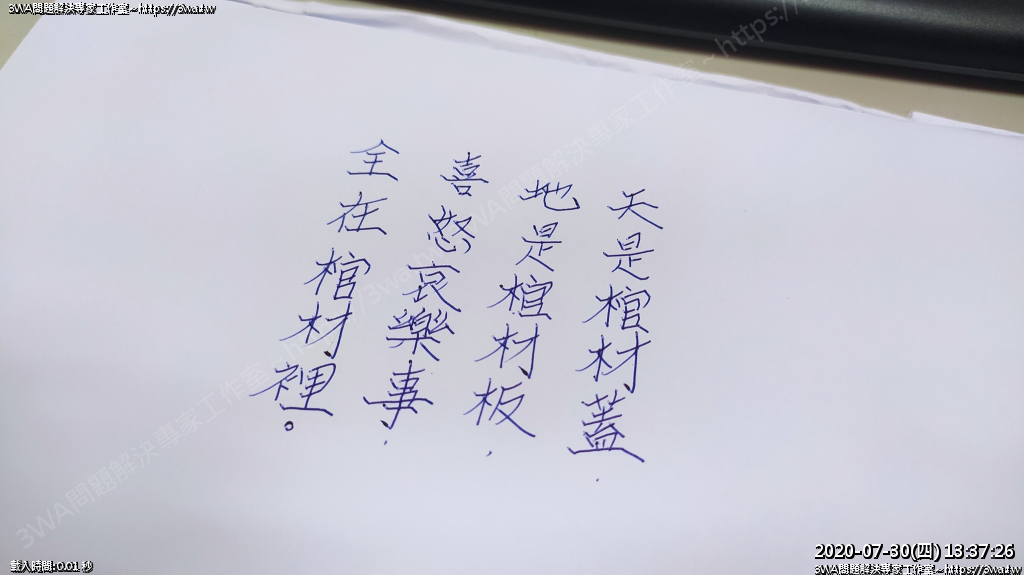 3WA問題解決專家工作室~https://3wa.tw
天是棺材蓋,
地是棺材板,
喜怒哀樂事,
全在棺材裡。
3WA問題解決專家工作室~https://
3WA問題解決專家工作室~https://3wa.tw
載入時間: 0.01 秒
2020-07-30(四) 13:37:26
3WA問題解決專家工作室~https://3wa.tw